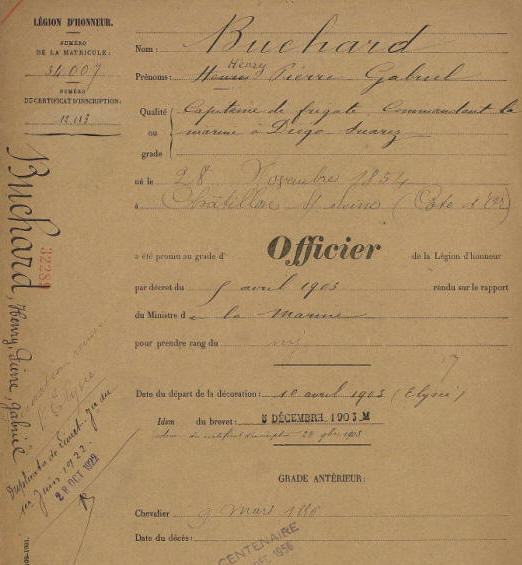 LÉGION D'HONNEUR.
NUMÉRO
DE LA MATRICULE:
34.007
NUMÉRO
DU CERTIFICAT D'INSCRIPTION:
12.113
Nom: Buchard
Henry
Prénoms: Pierre Gabriel
Qualité
ou
grade
Capitaine de frégate, Commandant la
marine à Diego Suarez
né le 28 Novembre 1854
à Châtillon s/ seine (Côte d'Or)
a été promu au grade d' Officier de la Légion d'honneur
par décret du 5 avril 1903 rendu sur le rapport
du Ministre de la Marine
pour prendre rang du
Date du départ de la décoration: 10 avril 1903 (Elysée)
Idem du brevet: 5 DÉCEMBRE 1903 M
idem du certificat d'inscription 28 9bre 1903
GRADE ANTÉRIEUR:
Chevalier 9 Mars
Date du décès:
CENTENAIRE
Buchard, Henry, Pierre, Gabriel
32289
l'Elysée
juin 1922
28 OCT 1922